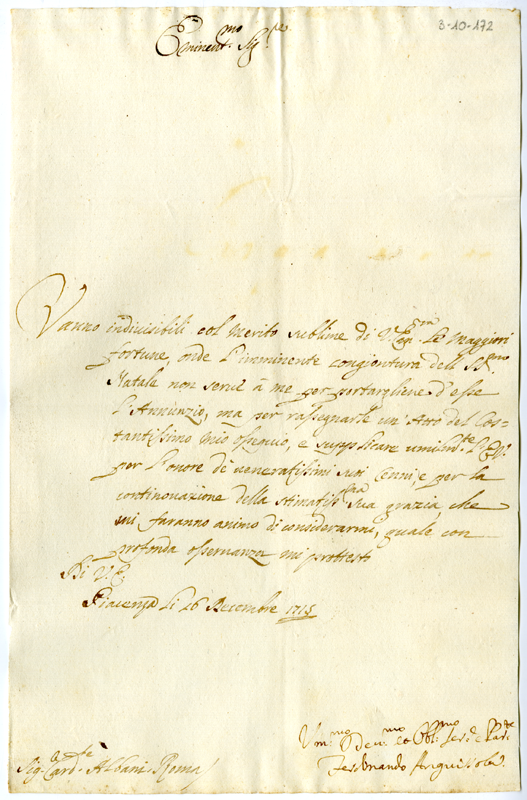 3-10-172
Eminent.mo Sig.re
Vanno indivisibili col merito sublime di V. Em. le maggiori
fortune, onde l'imminente congiontura dell SS.mo
Natale non serve à me per portargliene d'esse
l'Annunzio, ma per rassegnarle un'Atto del Cos-
tantissimo mio ossequio, e supplicare umilm.te l'E.V.
per l'onore de veneratissimi suoi Cenni, e per la
continovazione della stimatiss.ma sua grazia, che
mi faranno animo di considerarmi, quale con
profonda osservanza mi prottesto
Di V. E.
Piacenza li 26 Decembre 1715
Um.mo Dev.mo et Obl.mo Ser.e
Ferdinando Anguissola
Sig. Card.le Albani Roma